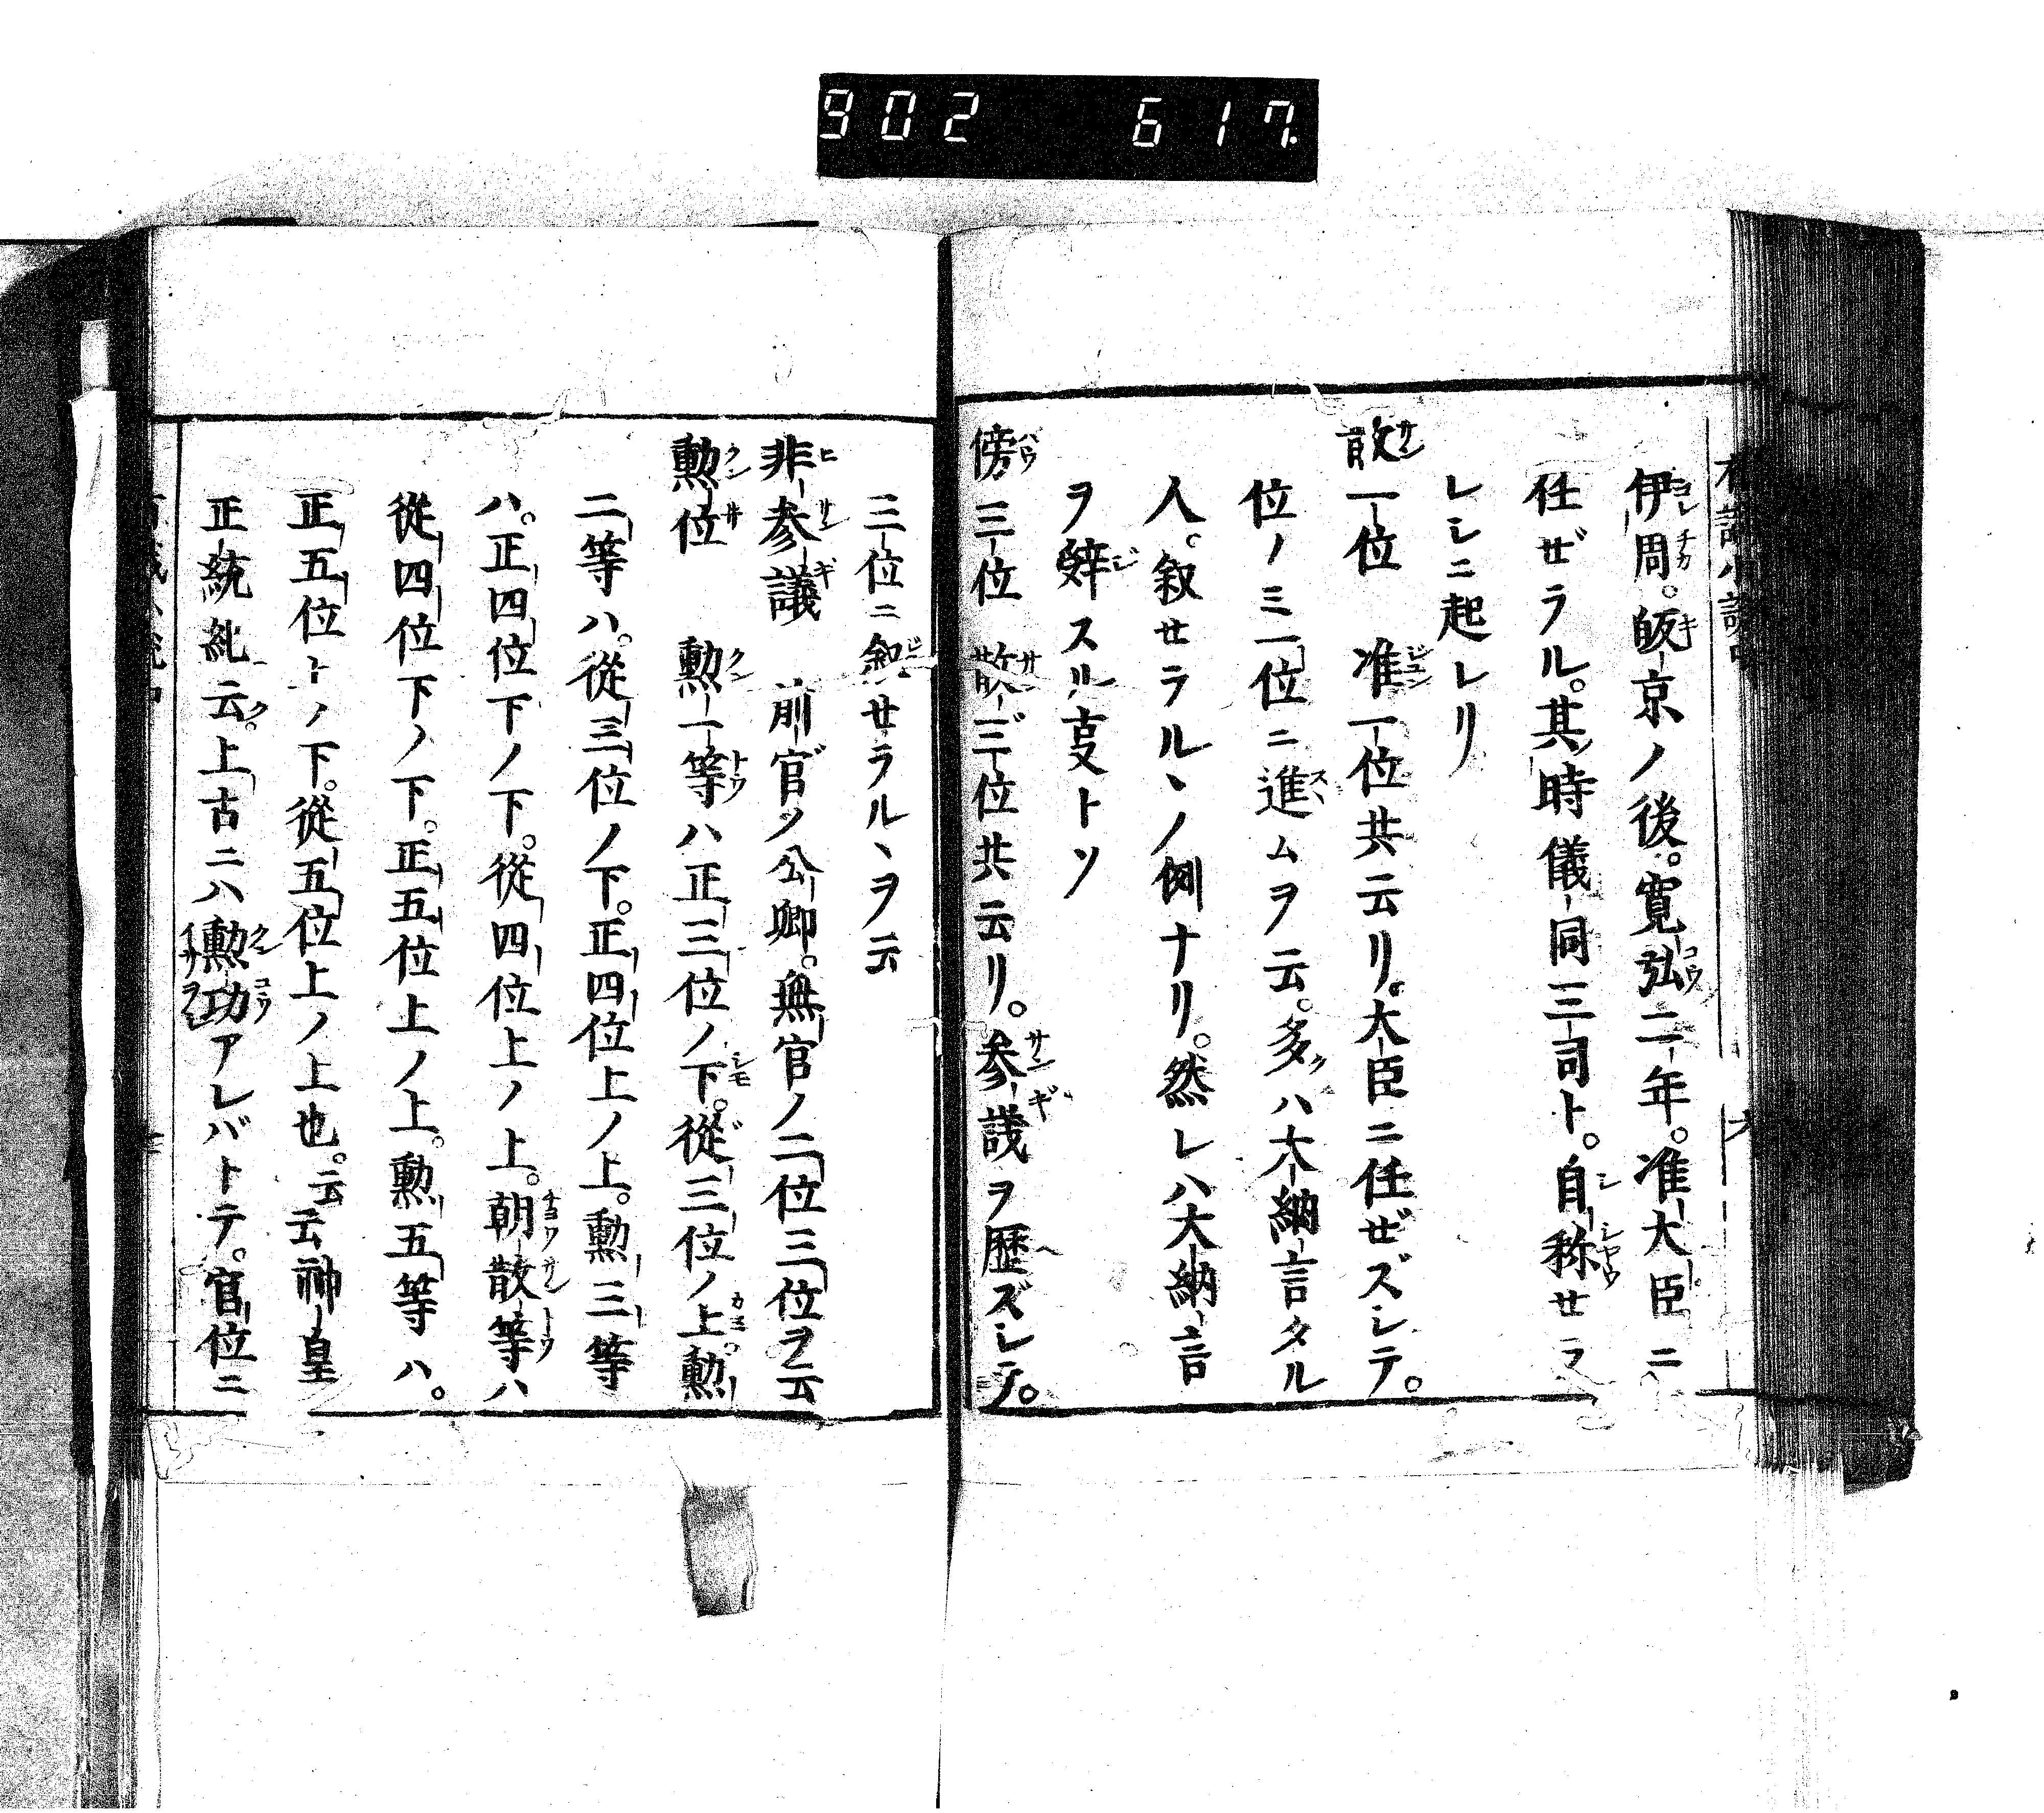 902 617
伊周。皈京ノ後。寛弘二年。准大臣ニ
任ぜラル。其時儀同三司ト。自称セラ
レシニ起レリ
散一位 准一位共云リ。大臣ニ任ぜズシテ。
位ノミ一位ニ進ムヲ云。多ハ大納言タル
人。叙セラルヽノ例ナリ。然レハ大納言
ヲ辤スル㕝トソ
傍三位 散三位共云リ。参議ヲ歴ズシテ。
三位ニ叙セラルヽヲ云
非参議 前官ノ公卿。無官ノ二位三位ヲ云
勲位 勲一等ハ正三位ノ下。從三位ノ上。勲
二等ハ。從三位ノ下。正四位上ノ上。勲三等
ハ。正四位下ノ下。從四位上ノ上。朝散等ハ
從四位下ノ下。正五位上ノ上。勲五等ハ。
正五位上ノ下。從五位上ノ上也。云云神皇
正統紀云。上古ニハ勲功アレバトテ。官位ニ